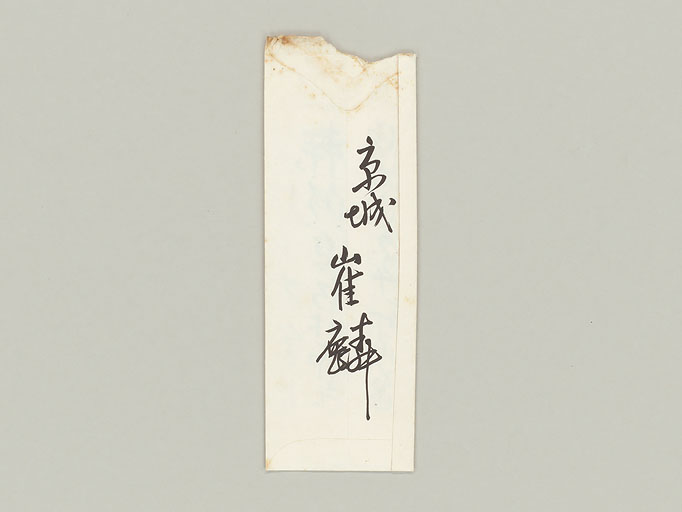 京城
崔麟